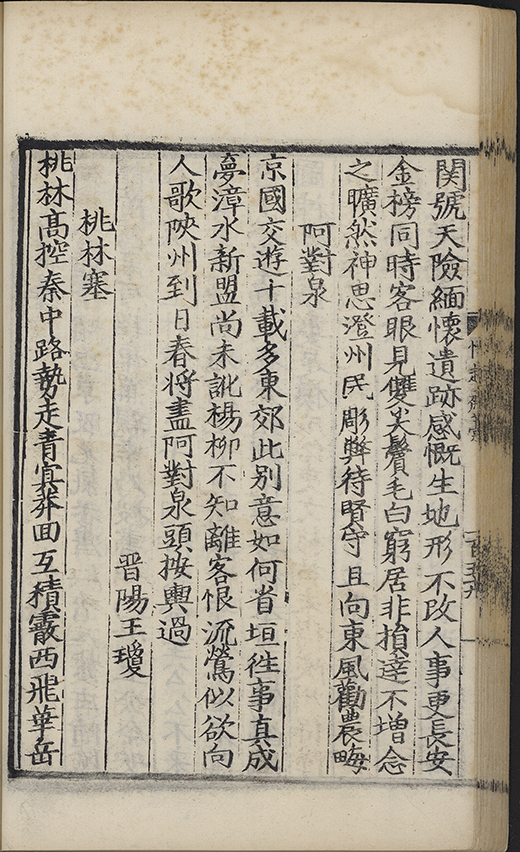 関號天險緬懷遺跡感慨生地形不改人事更長安
金榜同時客眼見雙尖鬢毛白窮居非損達不增念
之曠然神思澄州民彫弊待賢守且向東風勸農畮
阿對泉
京國交遊十載多東郊此別意如何省垣徃事真成
夢漳水新盟尚未訛楊柳不知離客恨流鶯似欲向
人歌陜州到日春將盡阿對泉頭按輿過
晋陽王瓊
桃林塞
桃林高控秦中路勢走青冥莽囬互積霰西飛華岳